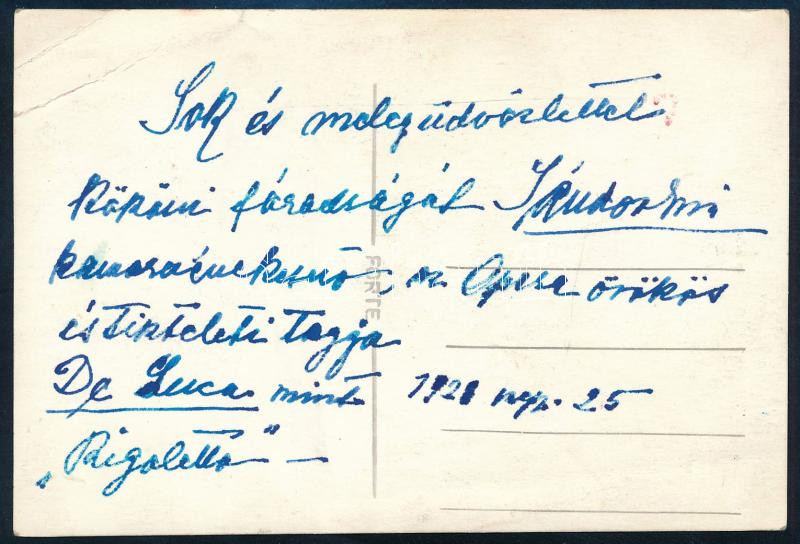 Sok és meleg üdvözlettel
kököni fáradságát Sándor Erzsi
kamaraénekesnő, az Opera örökös
és tiszteleti tagja
De Luca mint 1928 szep. 25
„Rigoletto" —
FORTE